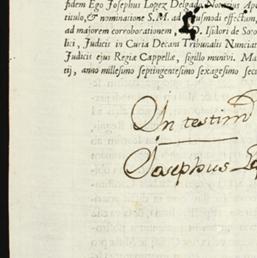 fidem Ego Josephus Lopez Delgado Notarius Apo
titulo, & nominatione S.M. ad ejusmodi effectum,
ad majorem corroborationem, D. Isidori de Soto
lici, Judicis in Curia Decani Tribunalis Nunciat
Judicis ejus Regiæ Cappellæ, sigillo munivi. Ma
tij, anno millesimo septingentesimo sexagesimo sec
In testim
Josephus